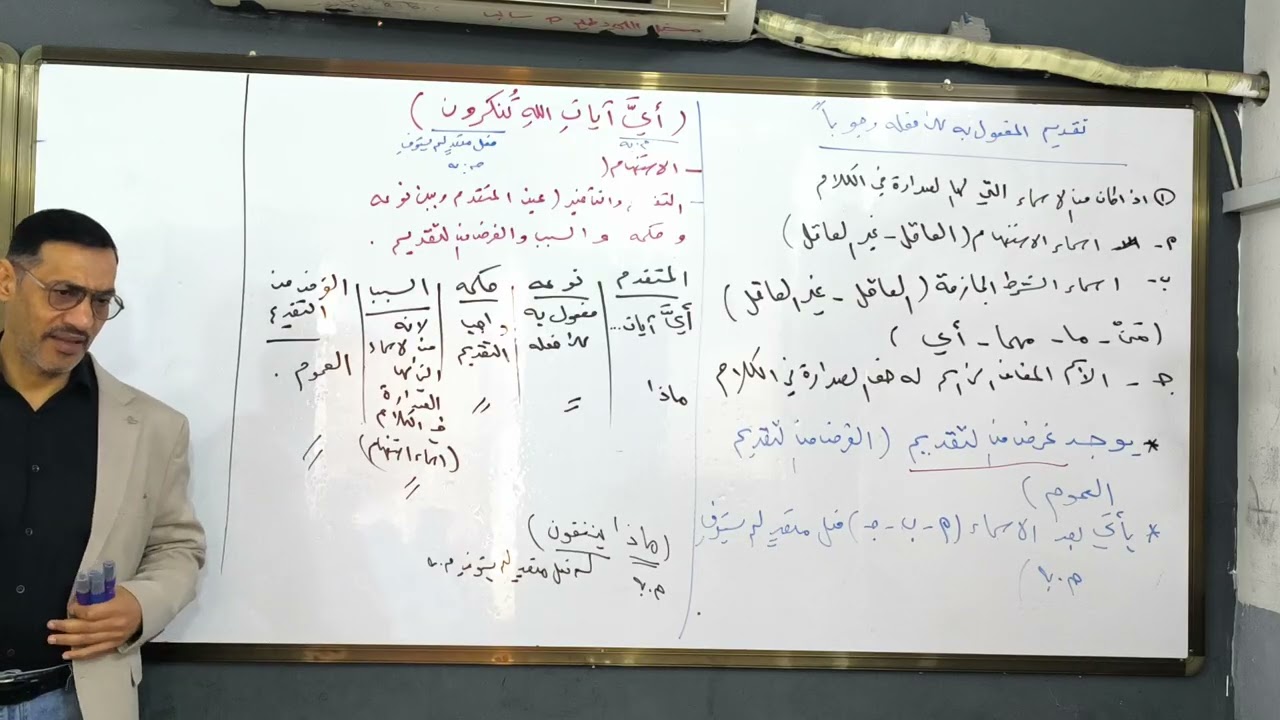 تقديم المفعول به على فعله وجوباً
① اذا كان من الاسماء التي لها الصدارة في الكلام
أ- اسماء الاستفهام (العاقل - غير العاقل)
ب- اسماء الشرط الجازمة (العاقل - غير العاقل)
(مَنْ - ما - مهما - أي)
جـ - الاسم المضاف الى اسم له حق الصدارة في الكلام
* يوجد غرض من التقديم (الغرض من التقديم
العموم)
* يأتي بعد الاسماء (أ - ب - جـ) فعل متعدٍ لم يستوفِ
م. به)
(أيَّ آياتِ اللهِ تُنكرون)
م. به
فعل متعدٍ لم يستوفِ
م. به
- الاستفهام(
- التقديم والتأخير (عين المتقدم وبين نوعه
و حكمه والسبب والغرض من التقديم .
المتقدم
أيَّ آيات...
ماذا
نوعه
مفعول به
على فعله
=
حكمه
واجب
التقديم
〃
السبب
لانه
من الاسماء
التي لها
الصدارة
في الكلام
(اسماء استفهام)
〃
الغرض من
التقديم
العموم .
〃
(ماذا ينفقون)
م. به
فعل متعدٍ لم يستوفِ م. به